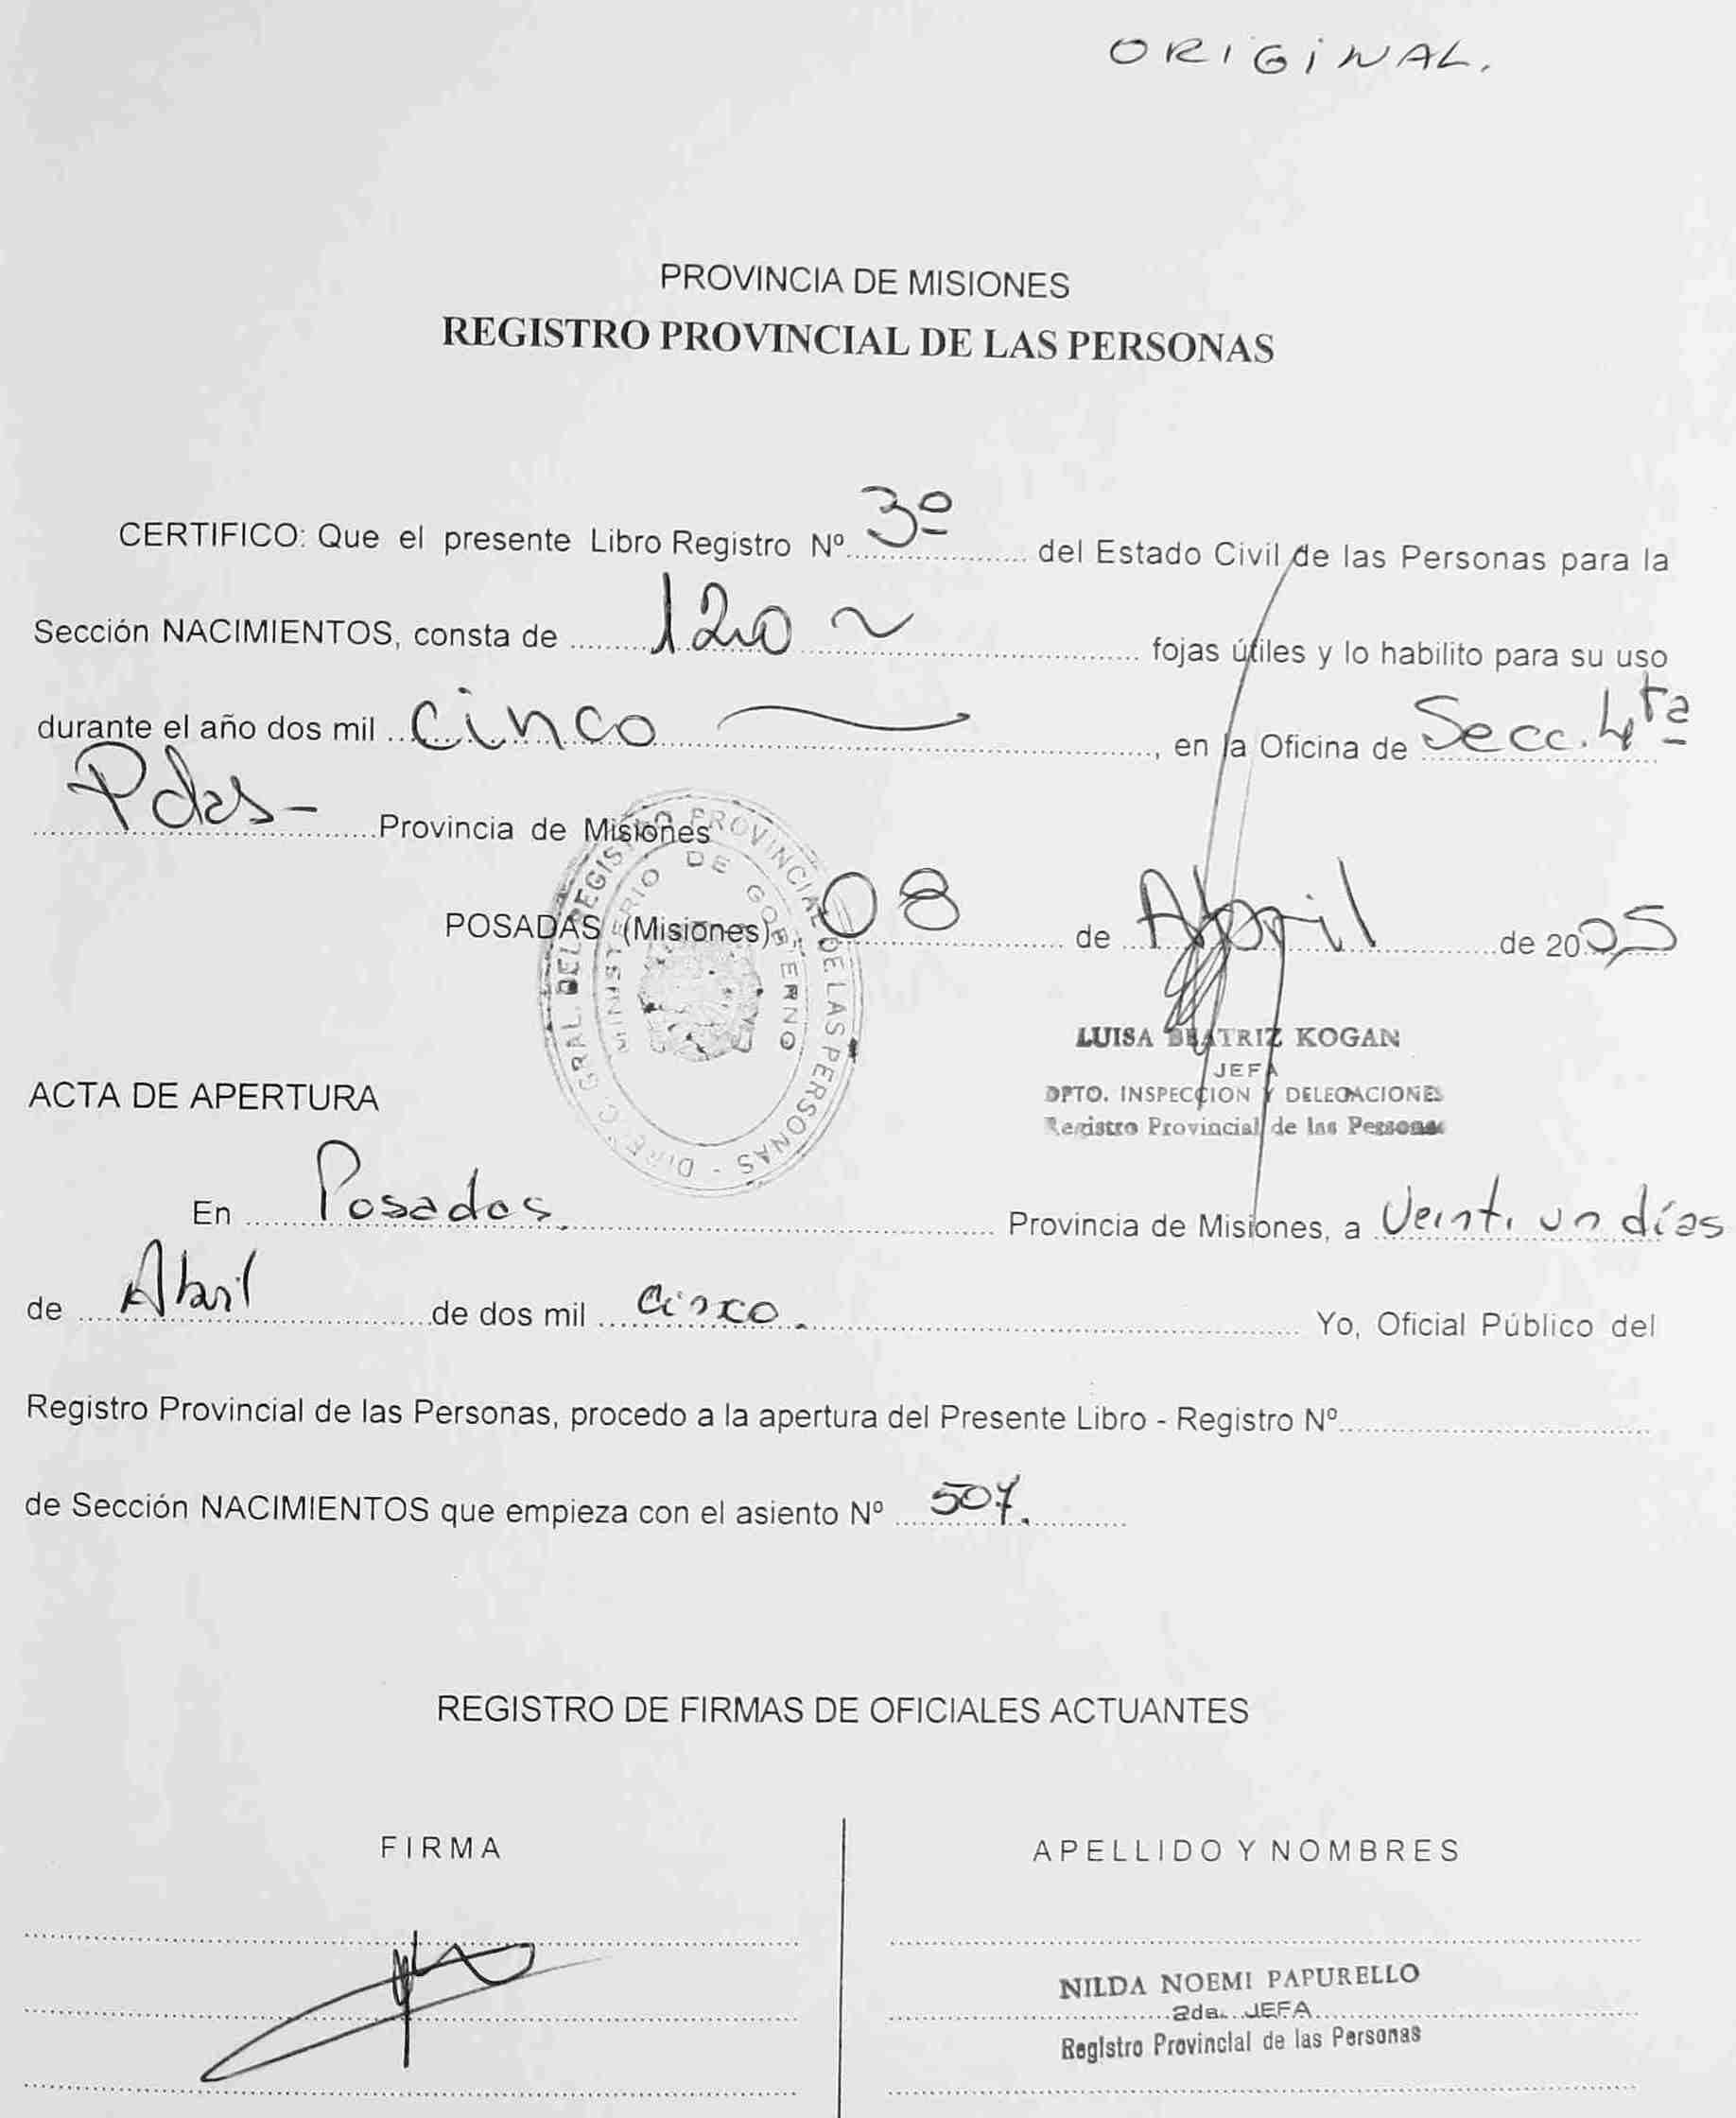 ORIGINAL.
PROVINCIA DE MISIONES
REGISTRO PROVINCIAL DE LAS PERSONAS
CERTIFICO: Que el presente Libro Registro Nº 3º del Estado Civil de las Personas para la
Sección NACIMIENTOS, consta de 120 fojas útiles y lo habilito para su uso
durante el año dos mil cinco, en la Oficina de Secc. 4ta
Pdas- Provincia de Misiones
POSADAS (Misiones) 08 de Abril de 2005
DIREC. GRAL. DEL REGISTRO PROVINCIAL DE LAS PERSONAS -
MINISTERIO DE GOBIERNO
LUISA BEATRIZ KOGAN
JEFA
DPTO. INSPECCION Y DELEGACIONES
Registro Provincial de las Personas
ACTA DE APERTURA
En Posadas. Provincia de Misiones, a Veinti un días
de Abril de dos mil cinco. Yo, Oficial Público del
Registro Provincial de las Personas, procedo a la apertura del Presente Libro - Registro Nº
de Sección NACIMIENTOS que empieza con el asiento Nº 507.
REGISTRO DE FIRMAS DE OFICIALES ACTUANTES
FIRMA
APELLIDO Y NOMBRES
NILDA NOEMI PAPURELLO
2da. JEFA
Registro Provincial de las Personas